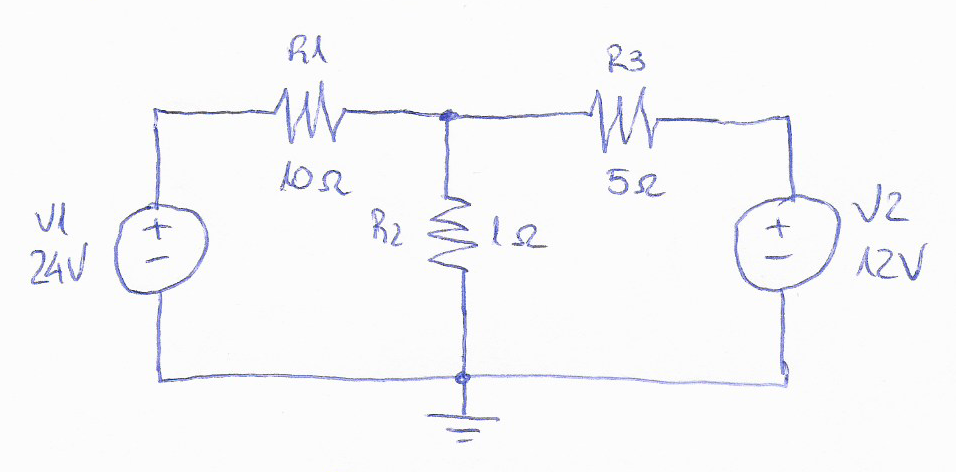 R1
10Ω
R3
5Ω
V1
24V
+
−
R2
1Ω
+
−
V2
12V